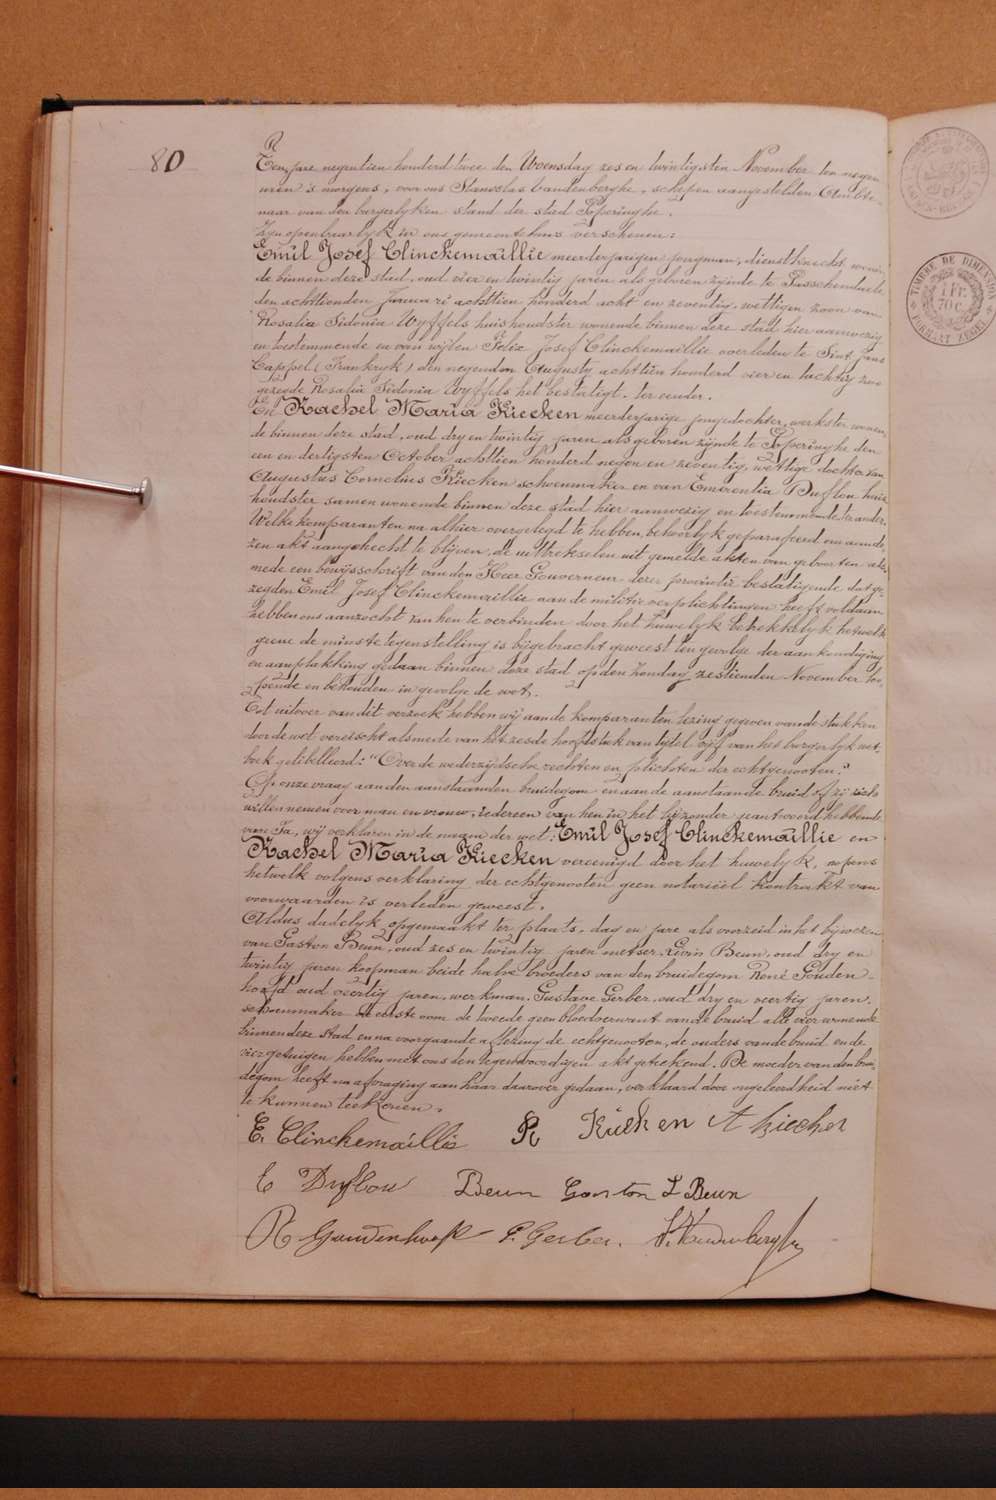 80
R
Ten jare negentien honderd twee den Woensdag zes en twintigsten November ten negen
uren 's morgens, voor ons Stanislas Vandenberghe, schepen aangestelden Ambte-
naar van den burgerlyken stand der stad Poperinghe.
Zyn openbaarlyk in ons gemeentehuis verschenen:
Emil Josef Clinckemaillie meerderjarigen jongman, dienstknecht wonen-
de binnen deze stad, oud vier en twintig jaren als geboren zijnde te Passchendaele
den achttienden Januari achttien honderd acht en zeventig, wettigen zoon van
Rosalia Sidonia Wyffels huishoudster wonende binnen deze stad hier aanwezig
en toestemmende en van wijlen Felix Josef Clinckemaillie overleden te Sint Jans
Cappel (Frankryk) den negenden Augusty achttien honderd vier en tachtig zoo
gezegde Rosalia Sidonia Wyffels het bestatigt. ter eender.
En Rachel Maria Kiecken meerderjarige jongedochter, werkster wonen-
de binnen deze stad, oud dry en twintig jaren als geboren zijnde te Poperinghe den
een en dertigsten October achttien honderd negen en zeventig, wettige dochter van
Augustus Cornelius Kiecken schoenmaker en van Emerentia Duflou huis-
houdster samen wonende binnen deze stad hier aanwezig en toestemmende ter ander.
Welke komparanten na alhier overgelegd te hebben, behoorlyk geparafeerd om aan de-
zen akt aangehecht te blijven, de uittrekselen uit gemelde akten van geboorten als-
mede een bewijsschrift van den Heer Gouverneur dezer provintie bestatigende dat ge-
zegden Emil Josef Clinckemaillie aan de militieverplichtingen heeft voldaan
hebben ons aanzocht van hen te verbinden door het huwelyk betrekkelyk hetwelk
geene de minste tegenstelling is bijgebracht geweest ten gevolge der aankondiging
en aanplakking gedaan binnen deze stad op den Zondag zestienden November loo-
pende en behouden in gevolge de wet.
Tot uitvoer van dit verzoek hebben wij aan de komparanten lezing gegeven van de stukken
door de wet vereischt alsmede van het zesde hoofdstuk van tytel vijf van het burgerlyk wet-
boek getitelleerd: "Over de wederzijdsche rechten en plichten der echtgenooten."
Op onze vraag aan den aanstaanden bruidegom en aan de aanstaande bruid of zij zich
willen nemen voor man en vrouw, iedereen van hen in het bijzonder geantwoord hebbende
van Ja, wij verklaren in de naam der wet: Emil Josef Clinckemaillie en
Rachel Maria Kiecken vereenigd door het huwelyk, nopens
hetwelk volgens verklaring der echtgenooten geen notariëel kontrakt van
voorwaarden is verleden geweest.
Aldus dadelyk opgemaakt ter plaats, dag en jare als voorzeid in het bijwezen
van Gaston Beun, oud zes en twintig jaren metser, Livin Beun, oud dry en
twintig jaren koopman beide halve broeders van den bruidegom René Gouden-
hoofd oud veertig jaren, werkman, Gustave Gerber, oud dry en veertig jaren,
schoenmaker de eerste oom de tweede geen bloedverwant van de bruid alle vier wonende
binnen deze stad en na voorgaande aflezing de echtgenooten, de ouders van de bruid en de
vier getuigen hebben met ons den tegenwoordigen akt geteekend. De moeder van den brui-
degom heeft na afvraging aan haar daarover gedaan, verklaard door ongeleerdheid niet
te kunnen teekenen.
E. Clinckemaillie R Kiecken A Kiecken
E Duflou Beun Gaston L Beun
R Goudenhooft G. Gerber. S. Vandenberghe
TIMBRE DE DIMENSION
1 Fr.
70 c.
FORMAAT ZEGEL